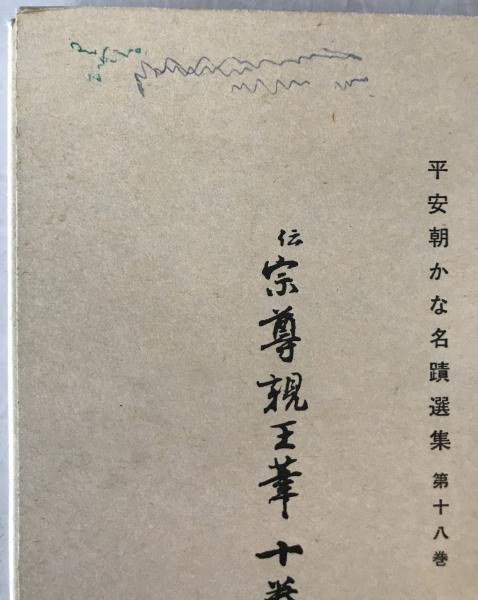 平安朝かな名蹟選集 第十八巻
伝 宗尊親王筆 十巻